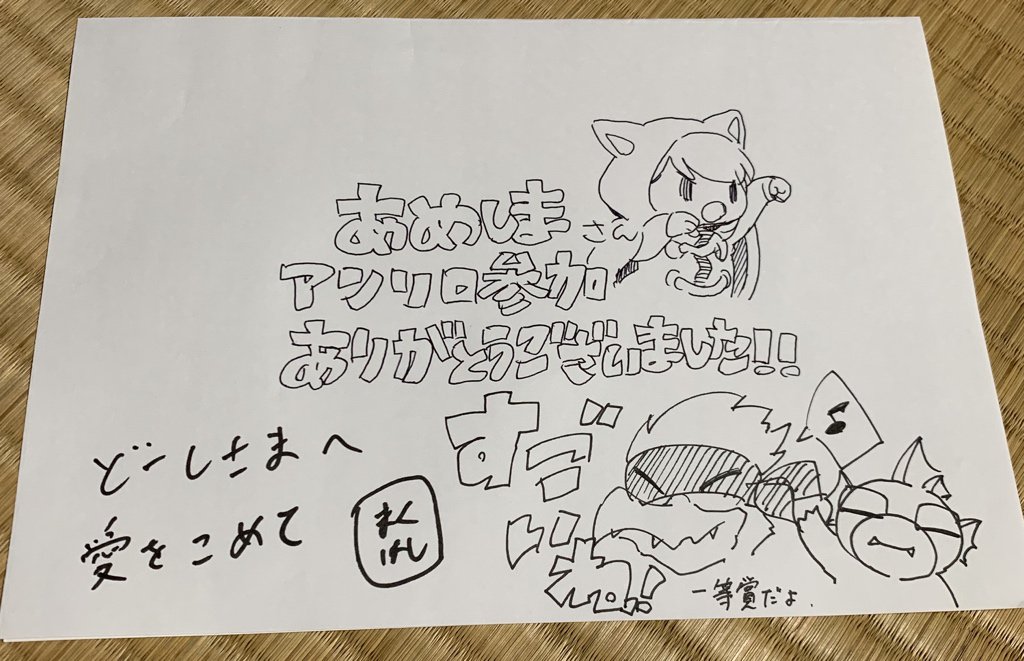 あめしまさん
アンリロ参加
ありがとうございました!!
すごいね!
一等賞だよ.
どーしさまへ
愛をこめて